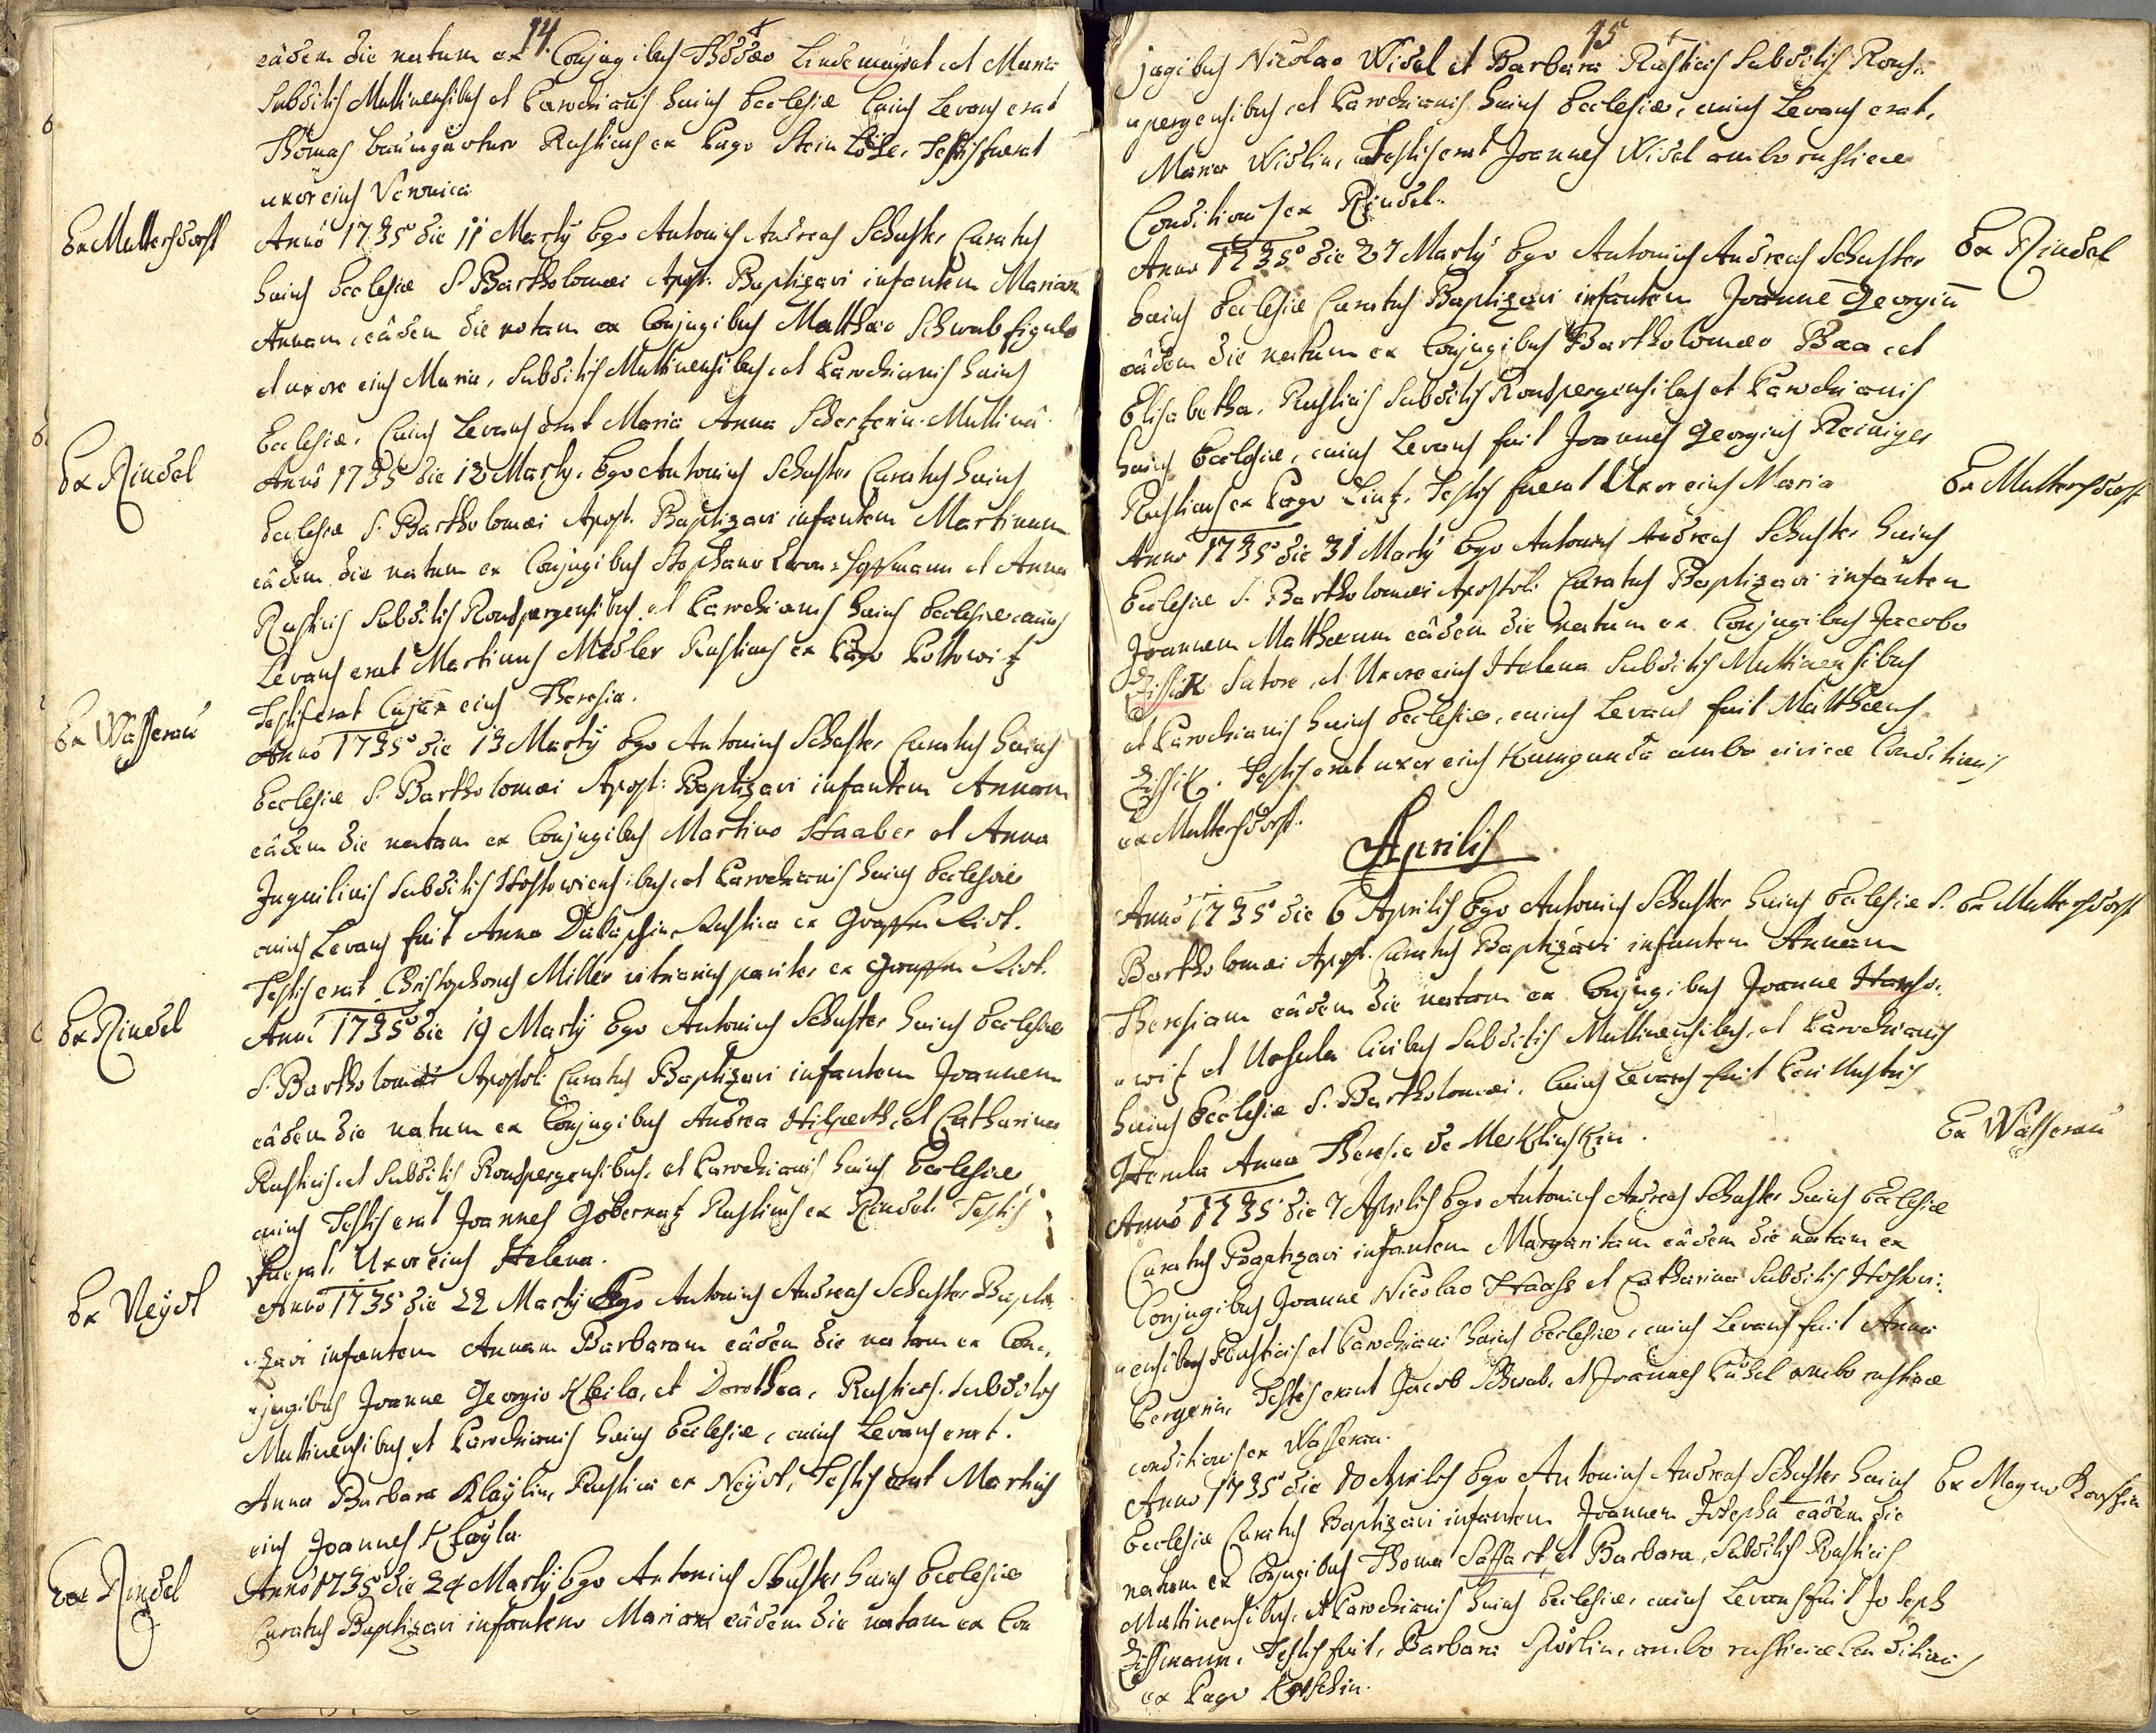 14.
eâdem die natum ex Conjugibus Thôdæo Lindemayr et Maria
Subditis Muttinensibus et Parochianis hujus Ecclesiæ Cujus Levans erat
Thomas baumgartner Rusticus ex Pago Stein Testis fuerat
uxor ejus Veronica
Ex Muttersdorff
Anno 1735 die 11 Martÿ Ego Antonius Andreas Schuster Curatus
hujus Ecclesiæ S Bartholomæi Apost. Baptizavi infantem Mariam
Annam, eâdem die natam ex Conjugibus Matthæo Schwab figulo
et uxore ejus Maria, Subditis Muttinensibus et Parochianis hujus
Ecclesiæ. Cujus Levans erat Maria Anna Muttinâ.
Ex Rindel
Anno 1735 die 12 Martÿ. Ego Antonius Schuster Curatus hujus
Ecclesiæ S. Bartholomæi Apost. Baptizavi infantem Martinum
eâdem die natum ex Conjugibus Stephano et Anna
Rusticis Subditis Ronspergensibus et Parochianis hujus Ecclesiæ cujus
Levans erat Martinus Medler Rusticus ex Pago
Testis erat Conjux ejus Theresia.
Ex Wasserau
Anno 1735 die 13 Martÿ Ego Antonius Schuster Curatus hujus
Ecclesiæ S. Bartholomæi Apost: Baptizavi infantem Annam
eâdem die natam ex Conjugibus Martino Haaber et Anna
Inquilinis Subditis Hostowiensibus et Parochianis hujus Ecclesiæ
cujus Levans fuit Anna Rustica ex
Testis erat Christophorus Miller pariter ex
Ex Rindel
Anno 1735 die 19 Martÿ Ego Antonius Schuster hujus Ecclesiæ
S. Bartholomæi Apostoli Curatus Baptizavi infantem Joannem
eâdem die natum ex Conjugibus Andrea Hilperth et Catharina
Rusticis et Subditis Ronspergensibus et Parochianis hujus Ecclesiæ
cujus Testis erat Joannes Gobernatz Rusticus ex Rindel. Testis
fuerat Uxor ejus Helena.
Ex Neÿdt
Anno 1735 die 22 Martÿ Ego Antonius Andreas Schuster Bapti
zavi infantem Annam Barbaram eâdem die natam ex Con
jugibus Joanne Georgio Kleila, et Dorothea, Rusticis Subditis
Muttinensibus et Parochianis hujus Ecclesiæ, cujus Levans erat.
Anna Barbara Klaÿlin Rustica ex Neÿdt, Testis erat
ejus Joannes Klaÿla.
Ex Rindel
Anno 1735 die 24 Martÿ Ego Antonius Schuster hujus Ecclesiæ
Curatus Baptizavi infantem Mariam eâdem die natam ex Con
15
jugibus Nicolao Widel et Barbara Rusticis Subditis Rons
pergensibus et Parochianis hujus Ecclesiæ, cujus Levans erat.
Maria Widlin, Testis erat Joannes Widel ambo rusticæ
Conditionis ex Rindel.
Anno 1735 die 27 Martÿ Ego Antonius Andreas Schuster
Ex Rindel
hujus Ecclesiæ Curatus Baptizavi infantem Joannē Georgiū
eâdem die natum ex Conjugibus Bartholomæo Baa et
Elisabetha. Rusticis Subditis Ronspergensibus et Parochianis
hujus Ecclesiæ, cujus Levans fuit Joannes Georgius Reiniger
Rusticus ex Pago Linz. Testis fuerat Uxor ejus Maria
Ex Muttersdorff
Anno 1735 die 31 Martÿ Ego Antonius Andreas Schuster hujus
Ecclesiæ S. Bartholomæi Apostoli Curatus Baptizavi infantem
Joannem Matthæum eâdem die natum ex Conjugibus Jacobo
Zissik Sutore, et Uxore ejus Helena Subditis Muttinensibus
et Parochianis hujus Ecclesiæ, cujus Levans fuit Matthæus
Zissik. Testis erat uxor ejus Kunigunda ambo civicæ Conditionis
ex Muttersdorff.
Aprilis
Anno 1735 die 6 Aprilis Ego Antonius Schuster hujus Ecclesiæ S.
Ex Muttersdorff
Bartholomæi Apost. Curatus Baptizavi infantem Annam
Theresiam eâdem die natam ex Conjugibus Joanne
witz et Ursula Civibus Subditis Muttinensibus, et Parochianis
hujus Ecclesiæ S. Bartholomæi. Cujus Levans fuit Perillustris
Anna Theresia de
Ex Wasserau
Anno 1735 die 7 Aprilis Ego Antonius Andreas Schuster hujus Ecclesiæ
Curatus Baptizavi infantem Margaritam eâdem die natam ex
Conjugibus Joanne Nicolao Haass et Catharina Subditis Hostowi
ensibus Rusticis et Parochianis hujus Ecclesiæ, cujus Levans fuit Anna
Testes erant Jacob Schwab, et Joannes ambo rusticæ
conditionis ex Wasserau.
Anno 1735 die 10 Aprilis Ego Antonius Andreas Schuster hujus
Ex Magno
Ecclesiæ Curatus Baptizavi infantem Joannem Josephū eâdem die
natum ex Conjugibus Thoma Saffart et Barbara, Subditis Rusticis
Muttinensibus, et Parochianis hujus Ecclesiæ, cujus Levans fuit Joseph
Zissmann. Testis fuit, Barbara ambo rusticæ Conditionis
ex Pago